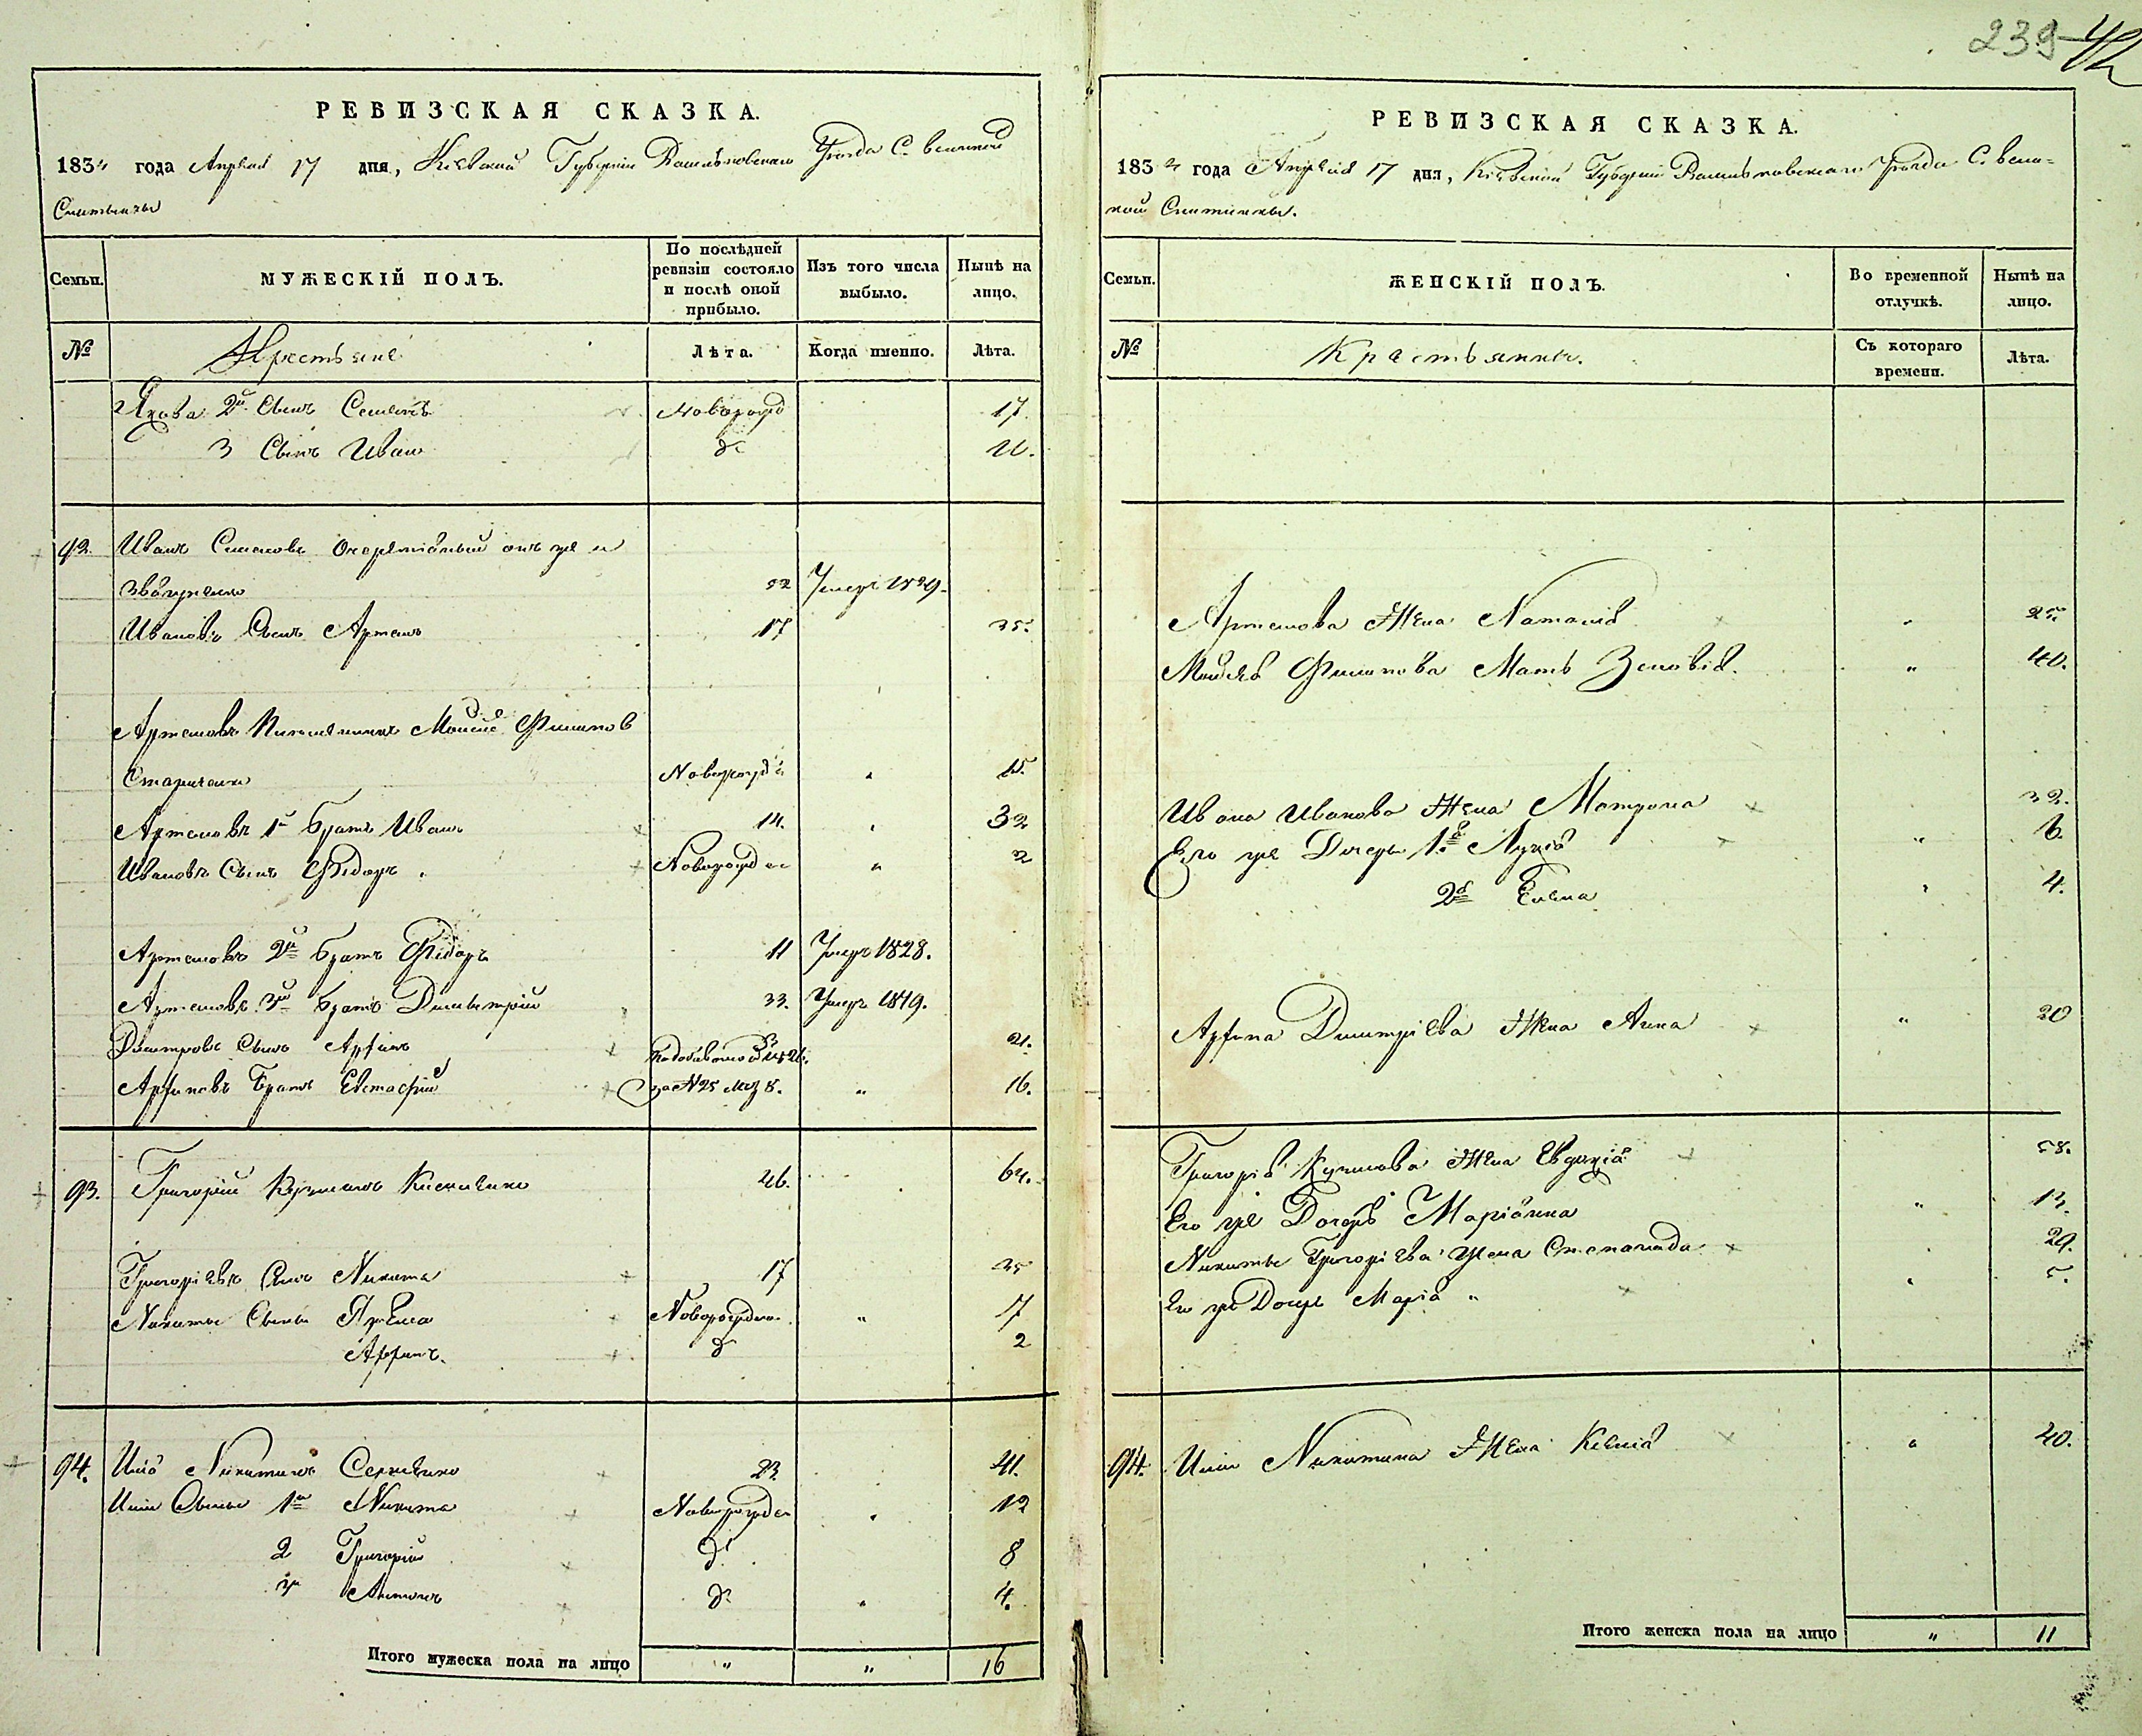 239 42
РЕВИЗСКАЯ СКАЗКА.
1834 года Апреля 17 дня, Кіевской Губерніи Васильковскаго Уезда С. великой
Снитынки
Семьи.
МУЖЕСКІЙ ПОЛЪ.
По послѣдней ревизіи состояло и послѣ оной прибыло.
Изъ того числа выбыло.
Нынѣ на лицо.
№
Крестьяне
Лѣта.
Когда именно.
Лѣта.
Якова 2й Сынъ Семенъ Новорожд 17.
3 Сынъ Иванъ дс
92. Иванъ онъ же и
52 Умеръ 1829.
Ивановъ Сынъ Артемъ 17 35.
Артемовъ Моисей Филипов
Новорожд 15.
Артемовъ 1й Братъ Иванъ 14. 32
Ивановъ Сынъ Фёдоръ Новорожден " 2
Артемовъ 2й Братъ Фёдоръ 11 Умеръ 1828.
Артемовъ 3й Братъ Димитрій 33. Умеръ 1819.
Дмитровъ Сынъ Арфинъ 21.
Арфиновъ Братъ Евстафій за №25 " 16.
93. Григорій 46. 64.
Григоріевъ Сынъ Никита 17 35
Никиты Сыны Ярема Новорожден " 7
Арфинъ. д 2
94. Никитинъ 23 41.
Сыны 1й Никита Новорожден 12
2 Григорій д 8
3й Антонъ д " 4.
Итого мужеска пола на лицо " " 16
РЕВИЗСКАЯ СКАЗКА.
1834 года Апреля 17 дня, Кіевской Губерніи Васильковскаго Уезда С. вели=
кой Снитинки.
Семьи.
ЖЕНСКІЙ ПОЛЪ.
Во временной отлучкѣ.
Нынѣ на лицо.
№
Крестьянки.
Съ котораго времени.
Лѣта.
Артемова Жена Наталія 25
Филипова Мать Зеновія. " 40.
Ивана Иванова Жена Матрона 32.
Его же Дочери 1я Лукія " 6.
2я Елена 4.
Арфина Димитріева Жена Анна " 20
Григорія Кузмова Жена Евдокія 58.
Его же Дочерь Маріанна " 13.
Никиты Григоріева Жена Степанида 29.
Его же Дочерь Марія " 5.
94. Никитина Жена Ксенія 40.
Итого женска пола на лицо " 11